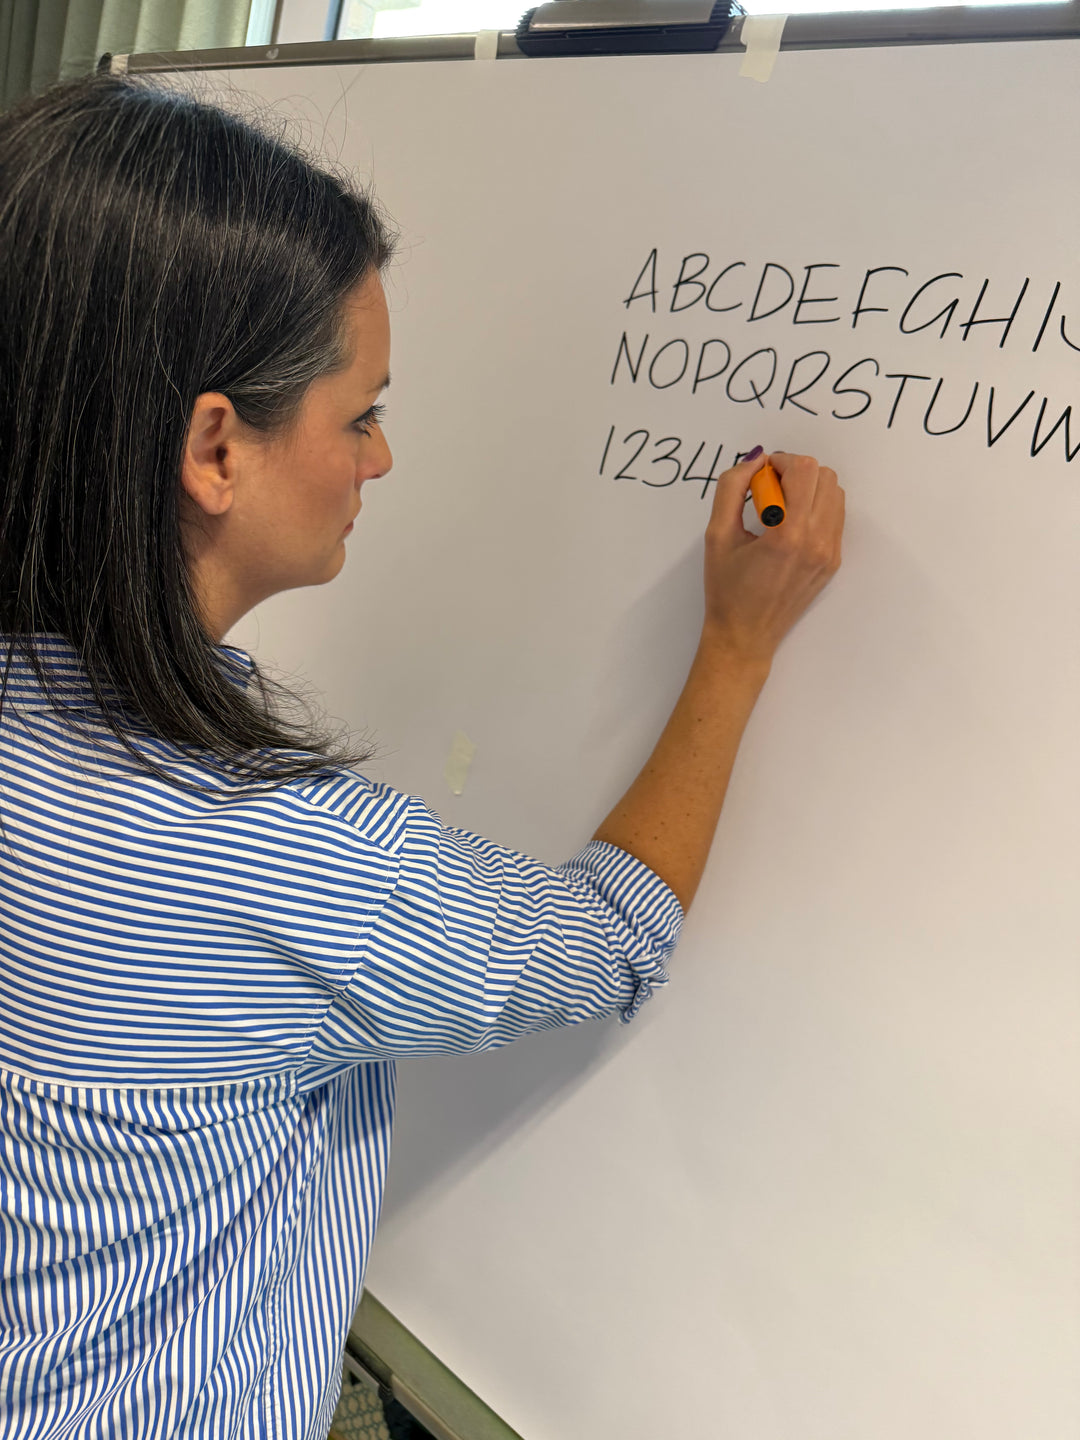 ABCDEFGHIJ
NOPQRSTUVW
1234